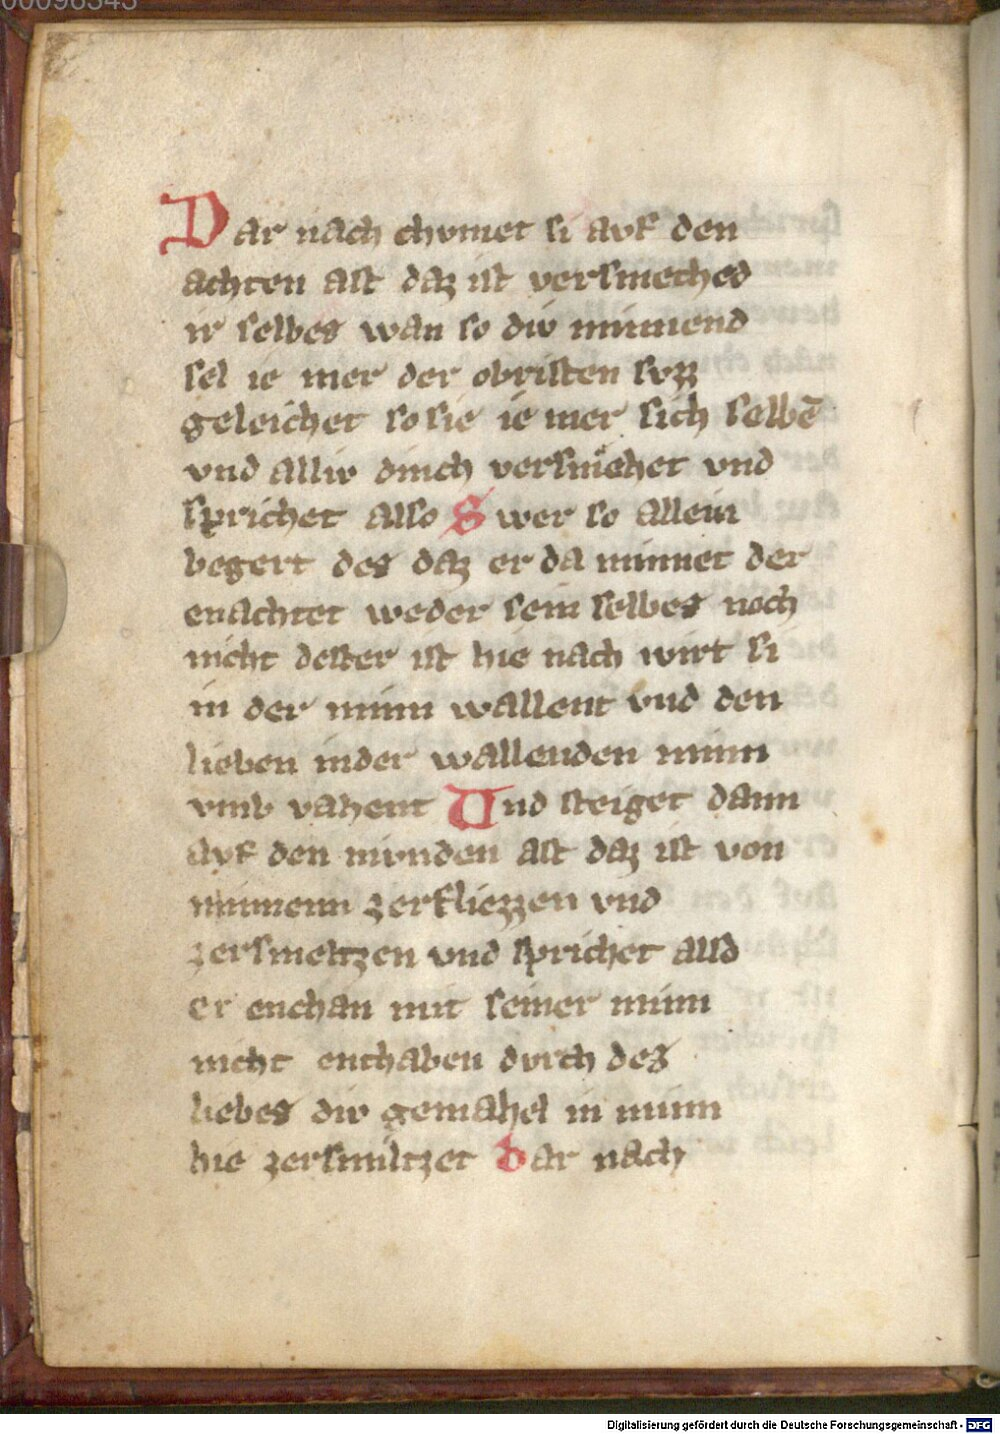 00096343
Dar nach chvmet si avf den
achten ast daz ist versmeches
ir selbes wan so div minnend
sel ie mer der obristen svzz
geleichet so sie ie mer sich selbē
vnd alliv dinch versmehet vnd
sprichet also Swer so allein
begert des daz er da minnet der
enachtet weder sein selbes noch
nicht dester ist hie nach wirt si
in der minn wallent vnd den
lieben inder wallenden minn
vmb vahent Und steiget dann
avf den nivnden ast daz ist von
minnenn zerfliezzen vnd
zersmeltzen vnd sprichet also
er enchan mit seiner minn
nicht enthaben dvrch dez
liebes div gemahel in minn
hie zersmiltzet Dar nach
Digitalisierung gefördert durch die Deutsche Forschungsgemeinschaft - DFG